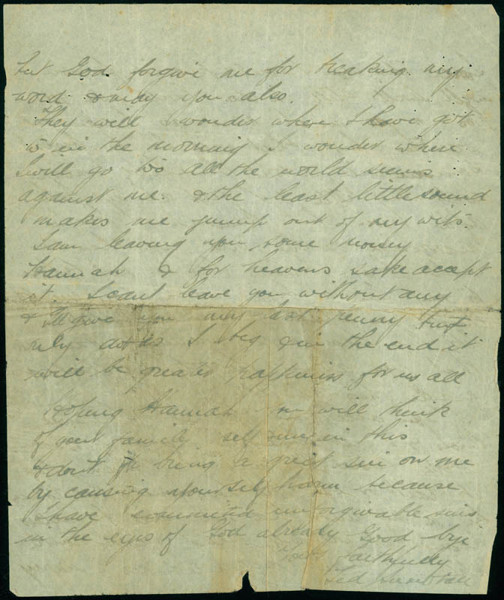 but God forgive me for breaking my
word & may you also.
They will wonder where I have got
to in the morning I wonder where
I will go to all the world seems
against me. & the least little sound
makes me jump out of my wits.
I am leaving you some money
Hannah & for heavens sake accept
it I cant leave you without any
& Ill give you my last penny but
only act as I beg & in the end it
will be greater happiness for us all
Hoping Hannah you will think
of your family in this
& dont bring a great sin on me
by causing yourself harm because
I have committed unforgivable sins
in the eyes of God already Good bye
faithfully
Ted